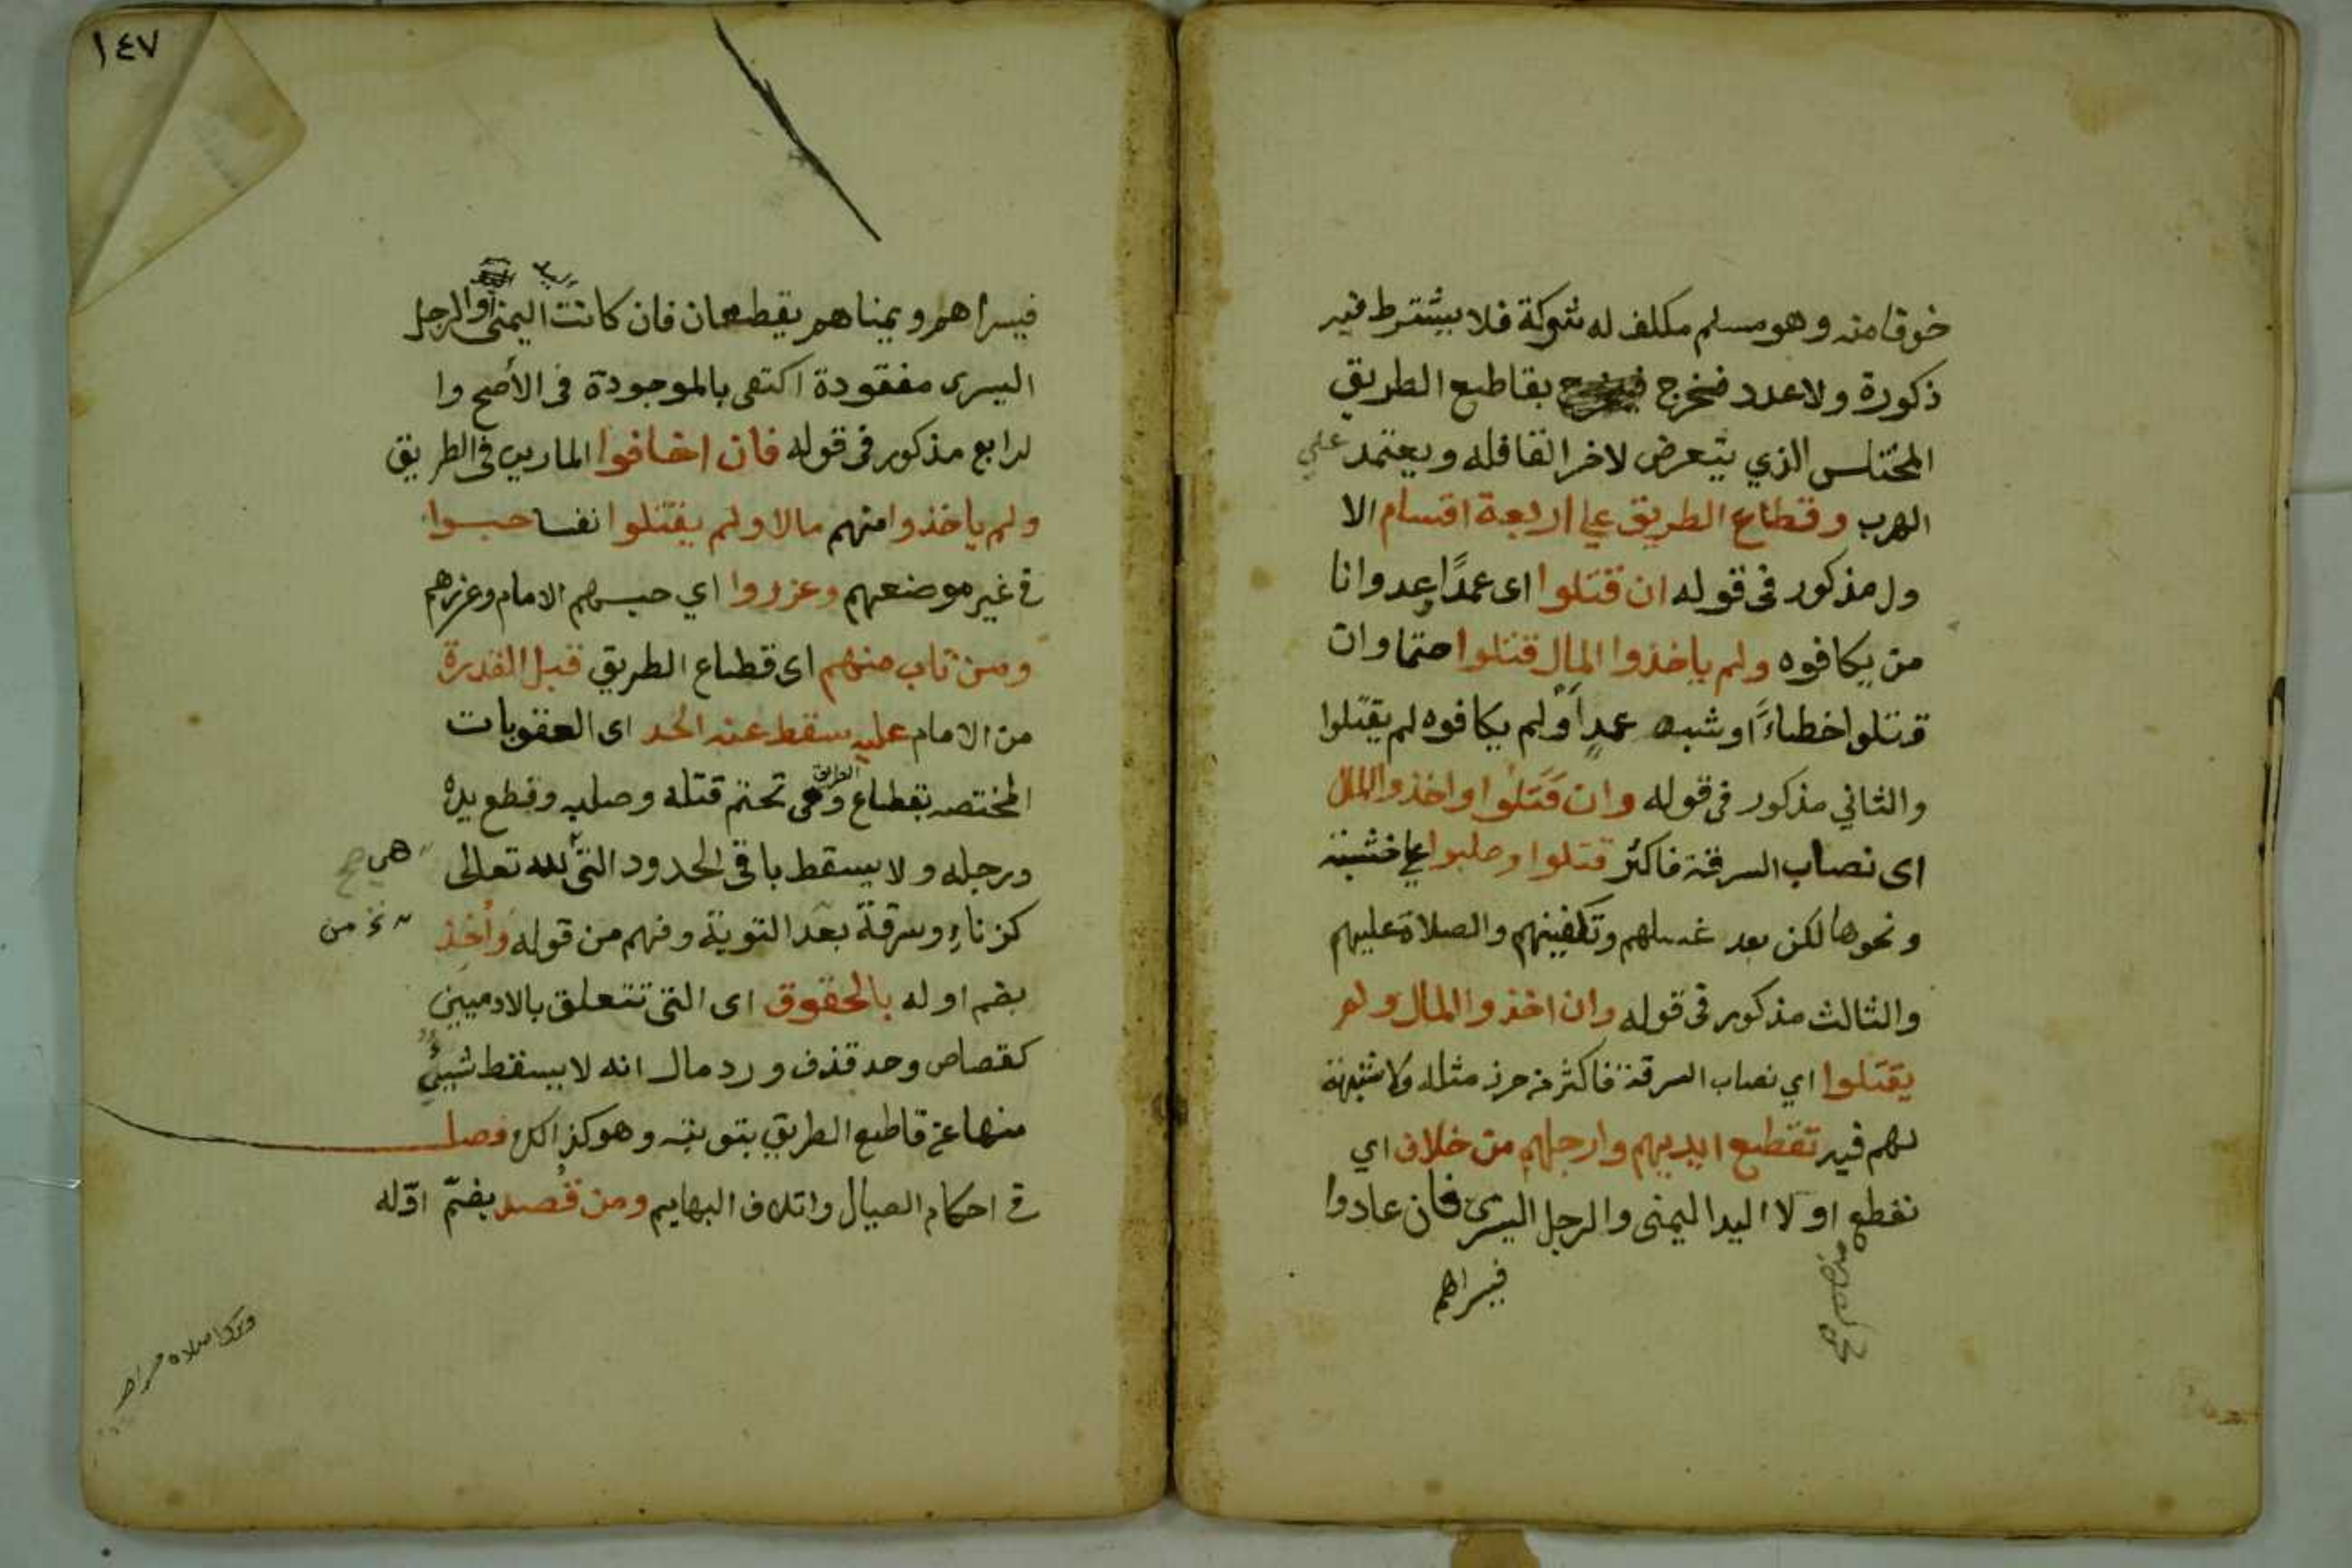 خوفا منه وهو مسلم مكلف له شوكة فلا يشترط فيه
ذكورة ولا عدد فخرج بقاطع الطريق
المختلس الذي يتعرض لاخر القافله ويعتمد علي
الهرب وقطاع الطريق علي اربعة اقسام الا
ول مذكور فى قوله ان قتلوا اى عمدًا عدوانا
من يكافوه ولم ياخذوا المال قتلوا حتما وان
قتلوا خطاءً او شبه عمدٍ أو لم يكافوه لم يقتلوا
والثاني مذكور فى قوله وان قَتَلُوا واخذوا المال
اى نصاب السرقة فاكثر قتلوا وصلبوا علي خشبة
ونحوها لكن بعد غسلهم وتكفينهم والصلاة عليهم
والثالث مذكور فى قوله وان اخذوا المال ولم
يقتلوا اي نصاب السرقة فاكثر من حرز مثله ولا شبهة
لهم فيه تقطع ايديهم وارجلهم من خلاف اي
تقطع اولا اليد اليمنى والرجل اليسرى فان عادوا
فيسراهم
١٤٧
فيسراهم ويمناهم يقطعان فان كانت اليمنى أو الرجل
اليسرى مفقودة اكتفى بالموجودة فى الأصح وا
لرابع مذكور فى قوله فان اخافوا المارين فى الطريق
ولم ياخذوا منهم مالا ولم يقتلوا نفسا حبسوا
فى غير موضعهم وعزروا اي حبسهم الامام وعزرهم
ومن تاب منهم اى قطاع الطريق قبل القدرة
من الامام عليه سقط عنه الحد اى العقوبات
المختصه بقطاع الطريق وهى تحتم قتله وصلبه وقطع يده
ورجله ولا يسقط باقى الحدود التى لله تعالى
هى
كزناءٍ وسرقة بعد التوبة وفهم من قوله وأخذ
من
بضم اوله بالحقوق اى التى تتعلق بالادميين
كقصاص وحد قذف ورد مال انه لا يسقط شيئ
منها عن قاطع الطريق بتوبته وهو كذالك فصل
فى احكام الصيال واتلاف البهايم ومن قُصد بضمّ اوّله